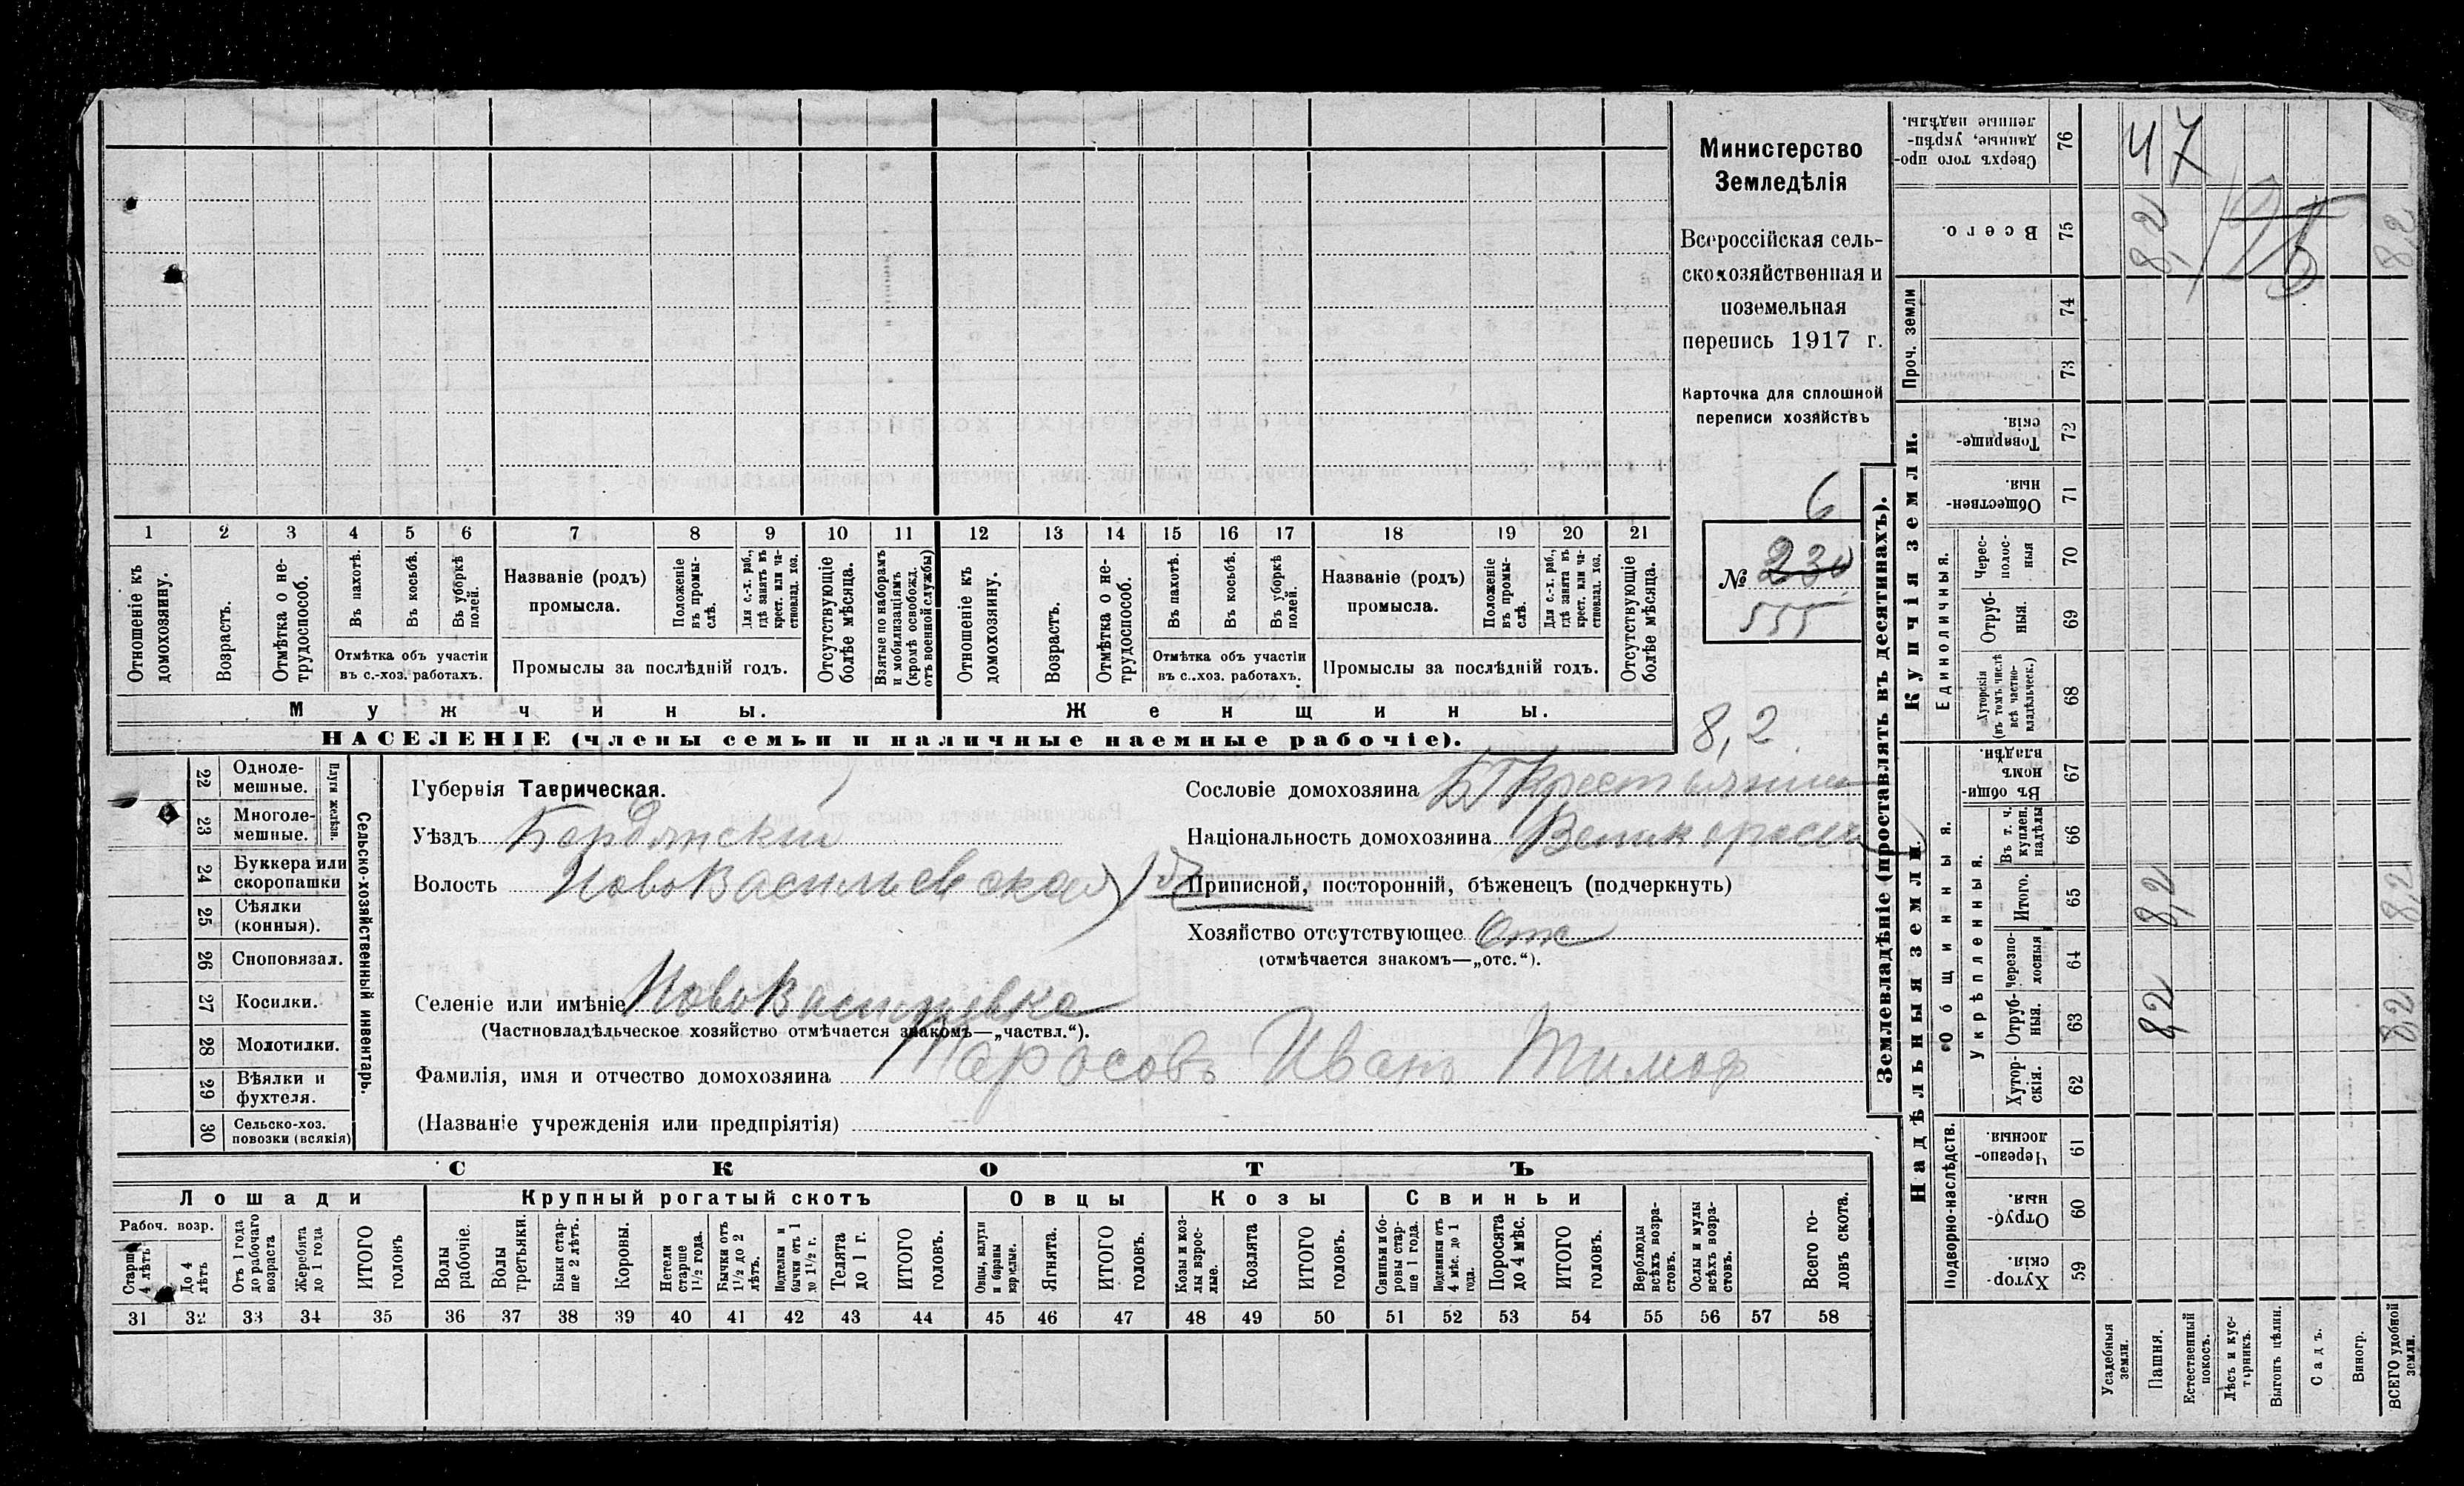 Министерство
Земледѣлія
Всероссійская сель-
скохозяйственная и
поземельная
перепись 1917 г.
Карточка для сплошной
переписи хозяйствъ
6
№ 230
555
8,2
1 2 3 4 5 6 7 8 9 10 11 12 13 14 15 16 17 18 19 20 21
Отношеніе къ домохозяину.
Возрастъ.
Отмѣтка о не-трудоспособ.
Въ пахотѣ.
Въ косьбѣ.
Въ уборкѣ полей.
Отмѣтка объ участіи
въ с.-хоз. работахъ.
Названіе (родъ)
промысла.
Положеніе въ промы-слѣ.
Для с.-х. раб., гдѣ занятъ въ крест. или ча-стновлад. хоз.
Промыслы за послѣдній годъ.
Отсутствующіе болѣе мѣсяца.
Взятые по наборамъ и мобилизаціямъ (кромѣ освобожд. отъ военной службы)
Отношеніе къ домохозяину.
Возрастъ.
Отмѣтка о не-трудоспособ.
Въ пахотѣ.
Въ косьбѣ.
Въ уборкѣ полей.
Отмѣтка объ участіи
въ с.-хоз. работахъ.
Названіе (родъ)
промысла.
Положеніе въ промы-слѣ.
Для с.-х. раб., гдѣ занята въ крест. или ча-стновлад. хоз.
Промыслы за послѣдній годъ.
Отсутствующіе болѣе мѣсяца.
Мужчины. Женщины.
НАСЕЛЕНІЕ (члены семьи и наличные наемные рабочіе).
22 Одноле-мешные.
23 Многоле-мешные.
Плуги желѣзн.
24 Буккера или скоропашки
25 Сѣялки (конныя).
26 Сноповязал.
27 Косилки.
28 Молотилки.
29 Вѣялки и фухтеля.
30 Сельско-хоз. повозки (всякія)
Сельско-хозяйственный инвентарь.
Губернія Таврическая.
Уѣздъ Бердянскій
Волость НовоВасильевская
Селеніе или имѣніе НовоВасильевка
(Частновладѣльческое хозяйство отмѣчается знакомъ—„частвл.“).
Фамилія, имя и отчество домохозяина Тарасовъ Иванъ Тимоф
(Названіе учрежденія или предпріятія)
Сословіе домохозяина Крестьянин
Національность домохозяина Великороссъ
Приписной, посторонній, бѣженецъ (подчеркнуть)
Хозяйство отсутствующее Отс
(отмѣчается знакомъ—„отс.“).
СКОТЪ
Лошади Крупный рогатый скотъ Овцы Козы Свиньи
Рабоч. возр.
Старше 4 лѣтъ
До 4 лѣтъ
Отъ 1 года до рабочаго возраста
Жеребята до 1 года
ИТОГО головъ
Волы рабочіе.
Волы третьяки.
Быки стар-ше 2 лѣтъ.
Коровы.
Нетели старше 1½ года.
Бычки отъ 1½ до 2 лѣтъ.
Подтелки и бычки отъ 1 до 1½ г.
Телята до 1 г.
ИТОГО головъ.
Овцы, валухи и бараны взрослые.
Ягнята.
ИТОГО головъ.
Козы и коз-лы взрос-лые.
Козлята
ИТОГО головъ.
Свиньи и бо-ровы стар-ше 1 года.
Подсвинки отъ 4 мѣс. до 1 года.
Поросята до 4 мѣс.
ИТОГО головъ.
Верблюды всѣхъ возра-стовъ.
Ослы и мулы всѣхъ возра-стовъ.
Всего го-ловъ скота.
31 32 33 34 35 36 37 38 39 40 41 42 43 44 45 46 47 48 49 50 51 52 53 54 55 56 57 58
Землевладѣніе (проставлять въ десятинахъ).
Надѣльныя земли. Купчія земли. Проч. земли
Сверхъ того про-данные, укрѣп-ленные надѣлы. 76 47
Всего. 75 8,2 8,2
74
73
Товарище-скія. 72
Обществен-ныя. 71
Единоличныя.
Черес-полос-ныя 70
Отруб-ныя. 69
Хуторскія (въ томъ числѣ всѣ частно-владѣльческ.) 68
Общинныя.
Въ общи-номъ владѣн. 67
Укрѣпленныя.
Въ т. ч. куплен. надѣлы 66
Итого. 65 8,2 8,2
Черезпо-лосныя 64
Отруб-ныя. 63 82 82
Хутор-скія. 62
Подворно-наслѣдств.
Черезпо-лосныя. 61
Отруб-ныя. 60
Хутор-скія. 59
Усадебныя земли.
Пашня.
Естественный покосъ.
Лѣсъ и кус-тарникъ.
Выгонъ цѣлин.
Садъ.
Виногр.
ВСЕГО удобной земли.